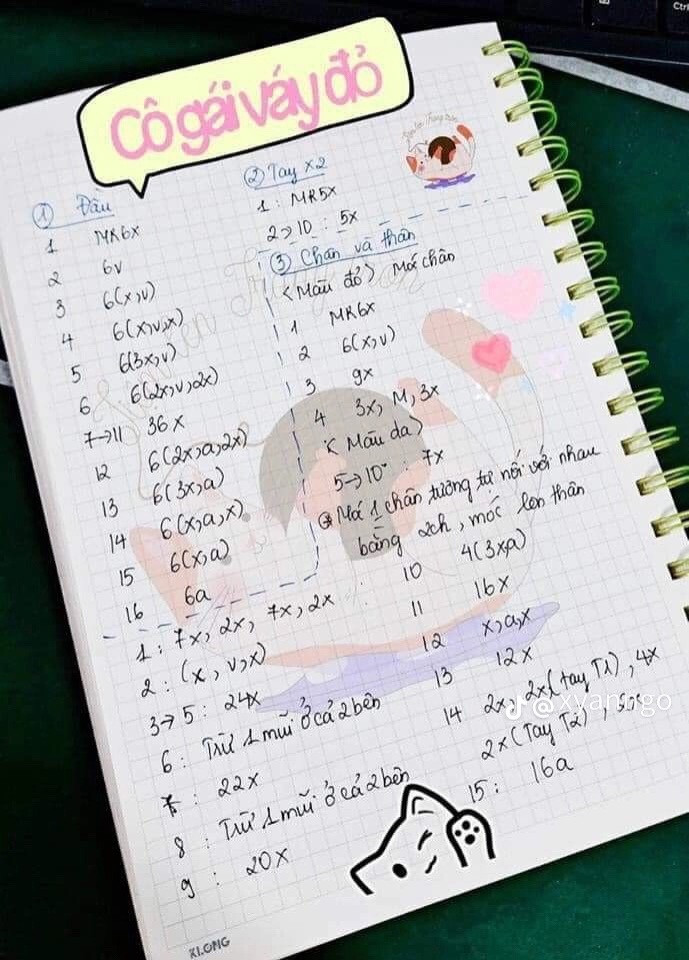 Cô gái váy đỏ
① Đầu
1 MR6X
2 6V
3 6(x,v)
4 6(x,v,x)
5 6(3x,v)
6 6(2x,v,2x)
7→11 36x
12 6(2x,a,2x)
13 6(3x,a)
14 6(x,a,x)
15 6(x,a)
16 6a
② Tay x2
1 : MR5X
2→10 : 5x
③ Chân và thân
<Màu đỏ> Móc chân
1 MR6X
2 6(x,v)
3 9x
4 3x, M, 3x
<Màu da>
5→10 : 7x
Mó 1 chân tương tự nối với nhau
bằng 2ch, móc lên thân
1 : 7x, 2x, 7x, 2x
2 : (x, v, x)
3→5 : 24x
6 : Trừ 1 mũi ở cả 2 bên
7 : 22x
8 : Trừ 1 mũi ở cả 2 bên
9 : 20x
10 : 4(3x,a)
11 16x
12 x,a,x
13 12x
14 2x, 2x(tay T1), 4x
2x(Tay T2),
15 : 16a
@xyanngo
KLONG
Ctrl